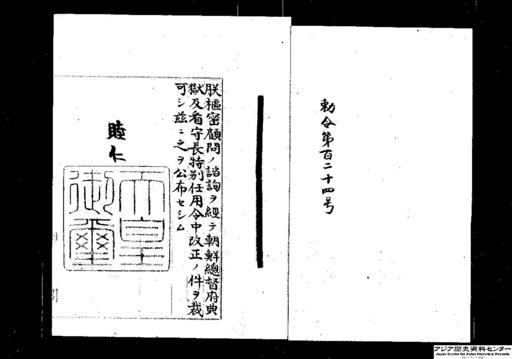 勅令第百二十四号
朕樞密顧問ノ諮詢ヲ經テ朝鮮總督府典
獄及看守長特別任用令中改正ノ件ヲ裁
可シ茲ニ之ヲ公布セシム
睦仁
天皇御璽
アジア歴史資料センター
Japan Center for Asian Historical Records